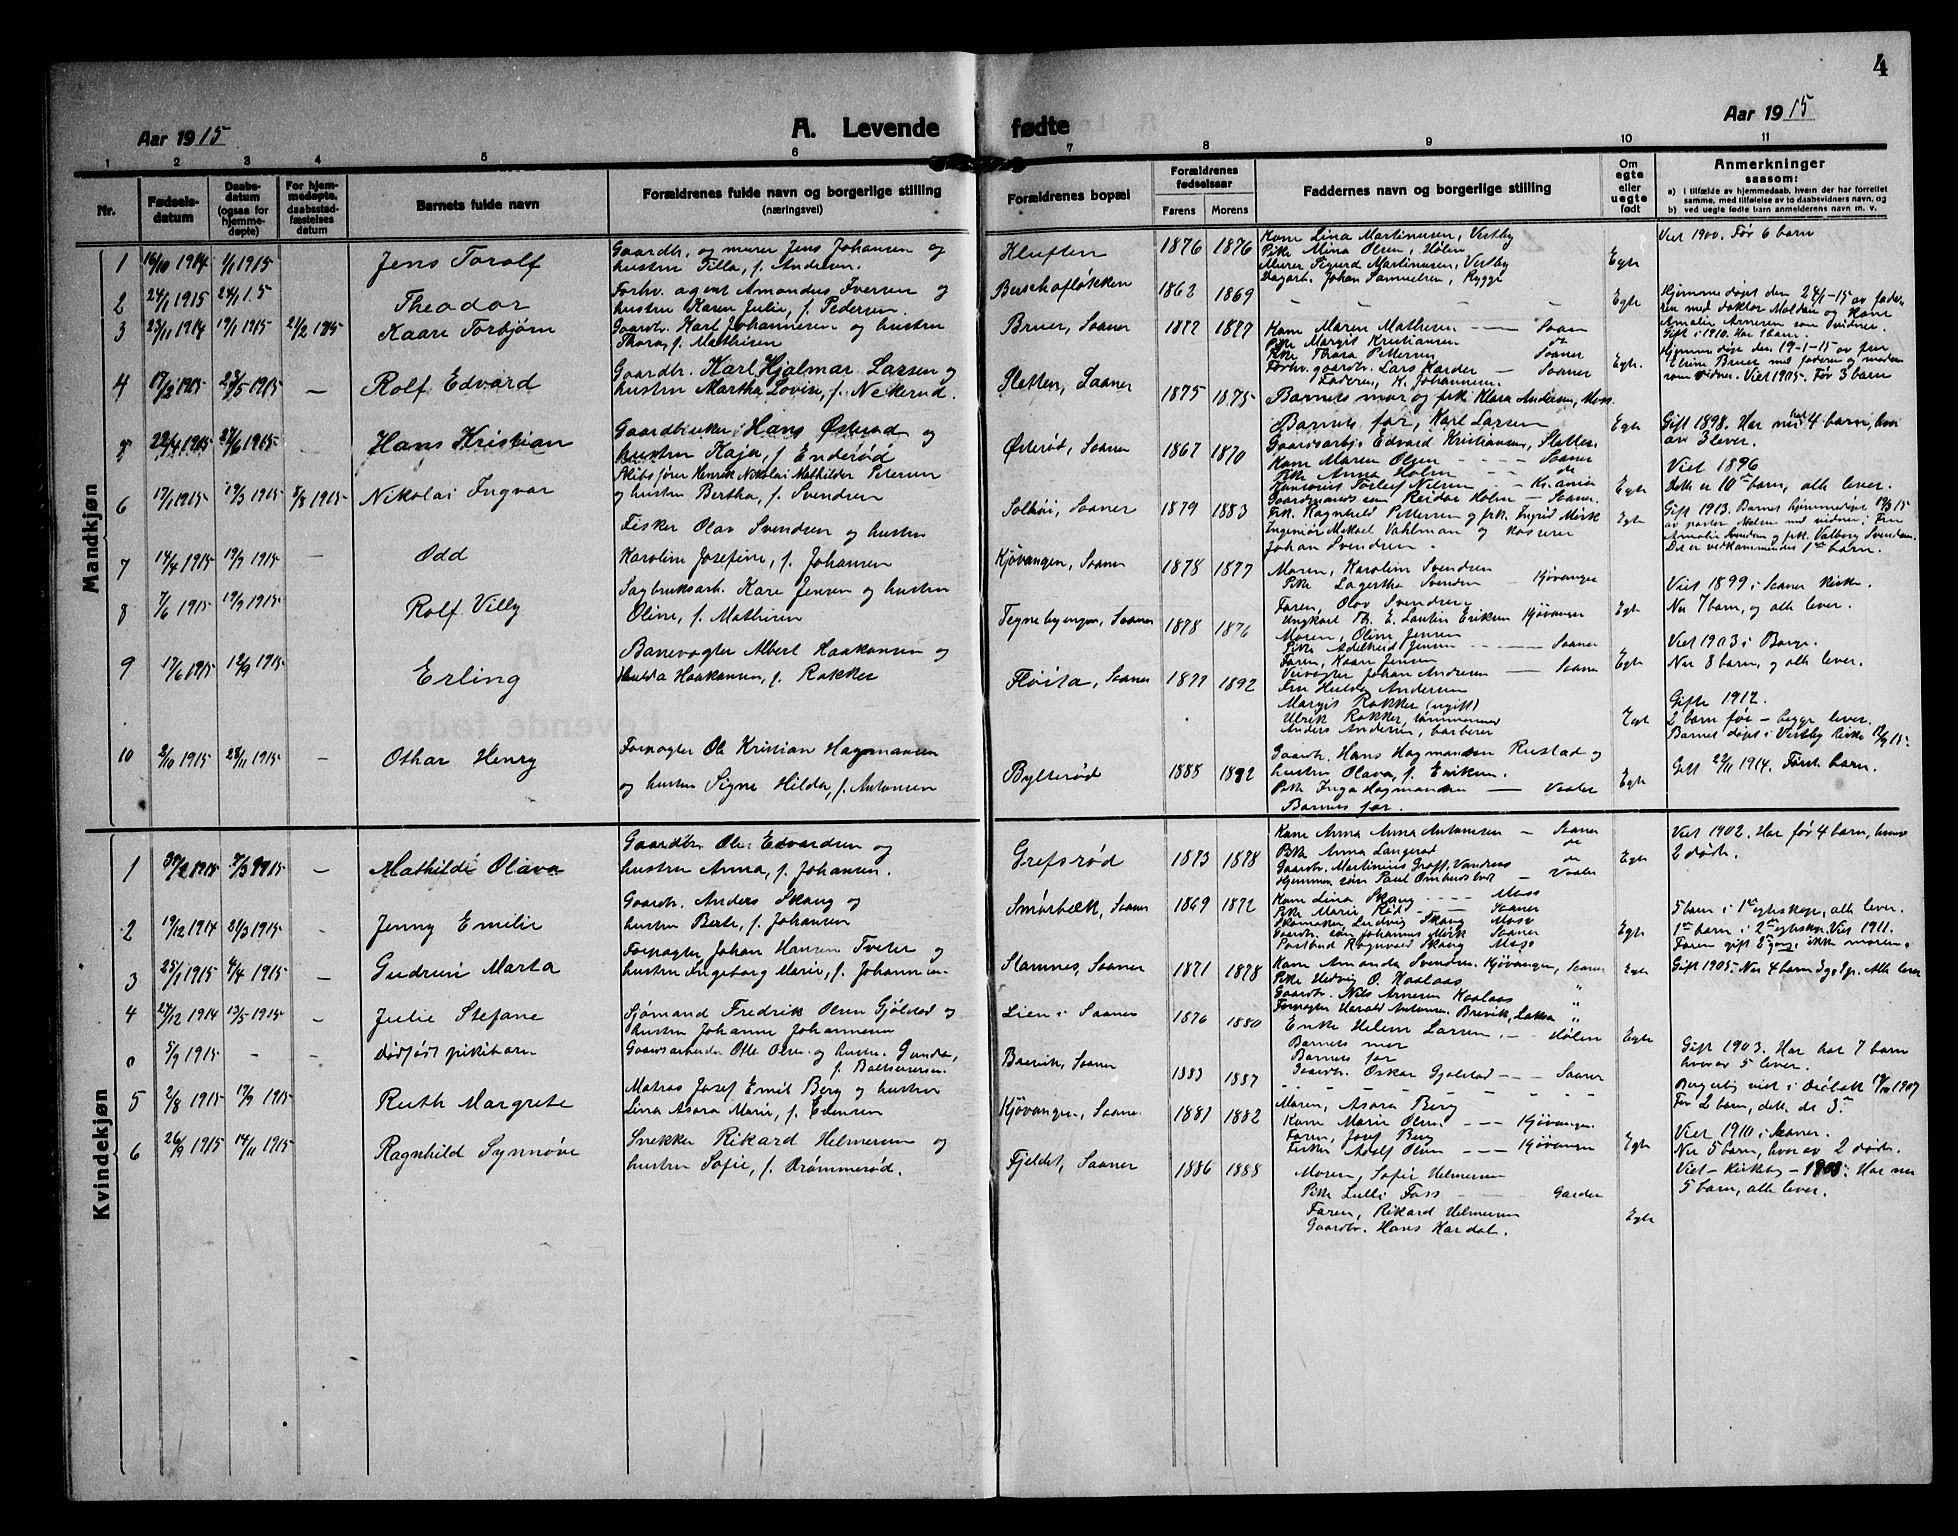 4
Aar 1915
A. Levende fødte
Aar 1915
1 2 3 4 5 6 7 8 9 10 11
Nr.
Fødsels-
datum
Daabs-
datum
(ogsaa for
hjemme-
døpte)
For hjem-
medøpte,
daabsstad-
fæstelses
datum
Barnets fulde navn
Forældrenes fulde navn og borgerlige stilling
(næringsvei)
Forældrenes bopæl
Forældrenes
fødselsaar
Farens Morens
Faddernes navn og borgerlige stilling
Om
egte
eller
uegte
født
Anmerkninger
saasom:
a) i tilfælde av hjemmedaab, hvem der har forrettet
samme, med tilføielse av to daabsvidners navn, og
b) ved uegte fødte barn anmelderens navn m. v.
Mandkjøn
1 16/10 1914 1/1 1915 Jens Torolf
Gaardbr. og murer Jens Johansen og
hustru Tilla, f. Andersen.
Kluften 1876 1876
Kone Lina Martinusen, Vestby
Pike Mina Olsen, Hølen
Murer Sigurd Martinusen, Vestby
Dagarb. Johan Samuelsen, Rygge
Egte
Viet 1900. Før 6 barn
2 24/1 1915 24/1 15 Theodor
Forhv. agent Amandus Iversen og
hustru Karen Julie, f. Pedersen.
1863 1869
Egte
Hjemmedøpt den 24/1-15 av fade-
ren med doktor Moldau og Kone
Amalie Arnesen som vidner.
Gift i 1910. Har 1 barn.
3 23/11 1914 19/1 1915 21/2 1915 Kaare Torbjørn
Gaardbr. Karl Johannesen og hustru
Thora, f. Mathisen
Bruer, Saaner 1872 1877
Kone Maren Mathisen — Saaner
Pike Margit Kristiansen do
Pike Thora Pettersen — Saaner
Forhv. gaardbr. Lars Harder — Saaner
Faderen, K. Johannesen.
Egte.
Hjemmedøpt den 19-1-15 av fru
Elrine Bruer med faderen og modern
som vidner. Viet 1905. Før 3 barn
4 17/2 1915 23/5 1915 — Rolf Edvard
Gaardbr. Karl Hjalmar Larsen og
hustru Martha Lovise, f. Nekerud.
Sletten, Saaner 1875 1875
Barnets mor og frk. Klara Andersen, Moss.
Barnets far, Karl Larsen
Gaardsarb. Edvard Kristiansen, Sletten.
Egte
Gift 1898. Har nu 4 barn, hvor
av 3 lever.
5 22/4 1915 27/6 1915 — Hans Kristian
Gaardbruker Hans Østerød og
hustru Kaja, f. Enderød
Østerød, Saaner 1867 1870
Kone Maren Olsen — Saaner
Pike Anna Holm — do
Torleif Nilsen — Kr.ania
Gaardmands søn Reidar Holm — Saaner.
Egte
Viet 1896
Dette er 10de barn, alle lever.
6 17/1 1915 19/3 1915 8/8 1915 Nikolai Ingvar
Skibsfører Henrik Nikolai Mathilder Petersen
og hustru Bertha, f. Svendsen
Solhøi, Saaner 1879 1883
Frk. Ragnhild Pettersen og frk. Ingrid Mørk
Ingeniør Mikael Vahlman og
Johan Svendsen.
Egte
Gift 1913. Barnet hjemmedøpt 19/3 15
av pastor Moltzau med vidner: Fru
Amalie Svendsen og frk. Valborg Svendsen.
Det er vedkommendes 1ste barn.
7 14/4 1915 19/9 1915 — Odd
Fisker Olav Svendsen og hustru
Karoline Josefine, f. Johansen
Kjøvangen, Saaner 1878 1877
Moren, Karoline Svendsen
Pike Lagertha Svendsen — Kjøvangen
Faren, Olav Svendsen
Ungkarl Th. E. Lautin Eriksen Kjøvangen
Egte
Viet 1899 i Saaner Kirke.
Nu 7 barn, og alle lever.
8 7/6 1915 19/9 1915 Rolf Villy
Sagbruksarb. Kare Jensen og hustru
Oline, f. Mathisen
Tegnebyengen, Saaner 1878 1876
Moren, Oline Jensen
Pike Adelheid Jensen — Saaner
Faren, Kaare Jensen
Veivogter Johan Andresen — Saaner
Egte
Viet 1903 i Borge.
Nu 8 barn, og alle lever.
9 17/6 1915 12/9 1915 Erling
Banevogter Albert Haakonsen og
Hulda Haakonsen, f. Rakker
Fløita, Saaner 1891 1892
Fru Hulda Andersen
Margit Rakker (ugift)
Ulrik Rakker, tømmermand
Anders Andersen, barberer
Egte
Gifte 1912.
2 barn før — begge lever.
Barnet døpt i Vestby kirke 12/9 15.
10 2/10 1915 28/11 1915 — Othar Henry
Forpagter Ole Kristian Hagmansen
og hustru Signe Hilda, f. Antonsen
Bylterød 1888 1892
Gaardbr. Hans Hagmansen Rustad og
hustru Olava, f. Eriksen.
Pike Inga Hagmansen — Vaaler
Barnets far.
Egte
Gift 22/11 1914. Første barn.
Kvindekjøn
1 1915 — Mathilde Olava
Gaardbr. Ole Edvardsen og
hustru Anna, f. Johansen.
Grefsrød 1873 1878
Kone Anna Anna Antonsen — Saaner
Pike Anna Langerød do
Gaardbr. Martinius Graff, Vandrass do
Hjemmev. søn Paul Ombudstvet — Vaaler
Egte
Viet 1902. Har før 4 barn, hvorav
2 døde.
2 19/12 1914 21/3 1915 — Jenny Emilie
Gaardbr. Anders Skaug og
hustru Berte, f. Johansen
Smørbæk, Saaner 1869 1872
Kone Lina Skaug — Moss
Pike Marie Rød — Saaner
Skomaker Ludvig Skaug Moss
Gaardbr. søn Johannes Mørk Saaner
Postbud Ragnvald Skaug Moss
Egte
5 barn i 1ste egteskap, alle lever.
1ste barn i 2det egtesk. Viet 1911.
Faren gift 2 gang, ikke moren.
3 25/1 1915 4/4 1915 — Gudrun Marta
Forpagter Johan Hansen Tveter og
hustru Ingeborg Marie, f. Johannesen
Slamnes, Saaner 1871 1878
Kone Amanda Svendsen Kjøvangen, Saaner
Pike Hedvig O. Kaalaas "
Gaardbr. Nils Arnesen Kaalaas "
Forpagter Harald Antonsen Brevik, Løkka "
Egte
Gift 1905. Nu 4 barn 3 g. 1 p. Alle lever
4 27/12 1914 13/5 1915 — Julie Stefane
Sjømand Fredrik Olsen Gjølstad og
hustru Johanne Johannesen
Lien i Saaner 1876 1880
Enke Helene Larsen, — Hølen
Barnets mor
Barnets far
Gaardbr. Oskar Gjølstad — Saaner
Egte
Gift 1903. Har hat 7 barn
hvorav 5 lever.
0 5/9 1915 — — Dødfødt pikebarn
Gaardsarbeider Otto Olsen og hustru Gunda,
f. Baltsersen.
Brevik, Saaner 1883 1887
Borgerlig viet i Drøbak 1907
Før 2 barn, dette det 3.
5 2/8 1915 17/9 1915 Ruth Margrete
Matros Josef Emil Berg og hustru
Lina Asora Marie, f. Edensen
Kjøvangen, Saaner 1881 1882
Moren, Asora Berg
Kone Marie Olsen — Kjøvangen.
Faren, Josef Berg
Fisker Adolf Olsen — Kjøvangen
Egte
Viet 1910 i Saaner.
Nu 5 barn, hvorav 2 døde.
6 26/9 1915 14/11 1915 Ragnhild Synnøve
Snekker Rikard Helmersen og
hustru Sofie, f. Drømmerød.
Fjeldet, Saaner 1886 1888
Moren, Sofie Helmersen
Pike Lulli Foss — Garder
Faren, Rikard Helmersen
Gaardbr. Hans Hardal.
Egte
Viet — Kirkeby — 1908. Har nu
5 barn, alle lever.